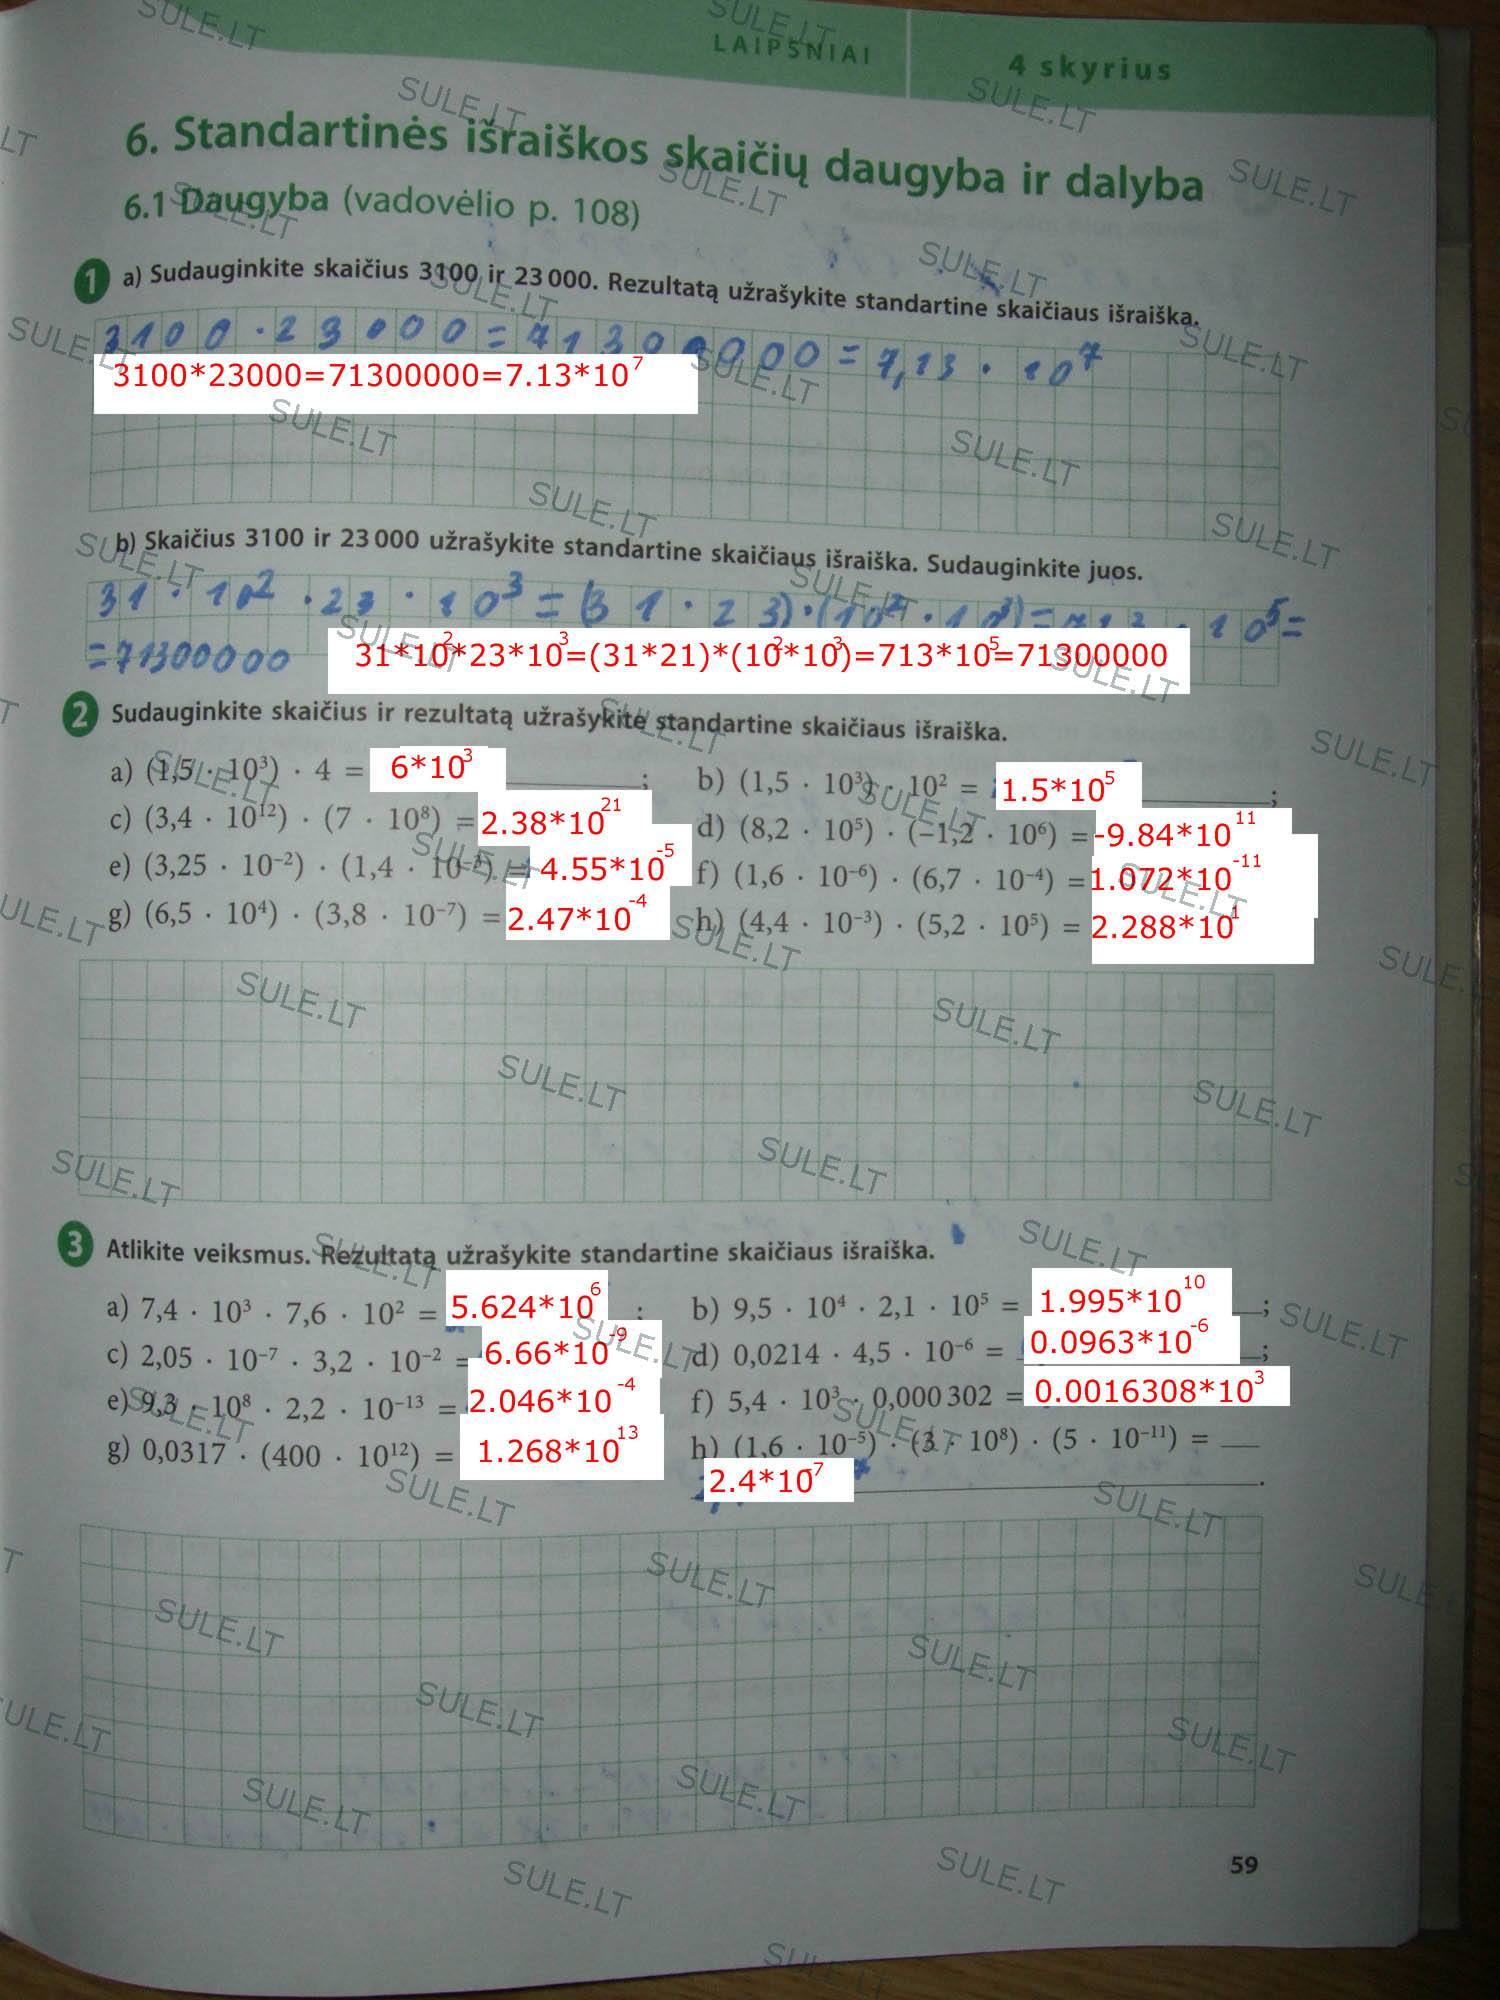 LAIPSNIAI
4 skyrius
6. Standartinės išraiškos skaičių daugyba ir dalyba
6.1 Daugyba (vadovėlio p. 108)
1 a) Sudauginkite skaičius 3100 ir 23 000. Rezultatą užrašykite standartine skaičiaus išraiška.
3100 · 23000 = 71300000 = 7,13 · 10⁷
3100*23000=71300000=7.13*10⁷
b) Skaičius 3100 ir 23 000 užrašykite standartine skaičiaus išraiška. Sudauginkite juos.
31 · 10² · 23 · 10³ = (31 · 23) · (10² · 10³) = 713 · 10⁵ =
= 71300000
31*10²*23*10³=(31*21)*(10²*10³)=713*10⁵=71300000
2 Sudauginkite skaičius ir rezultatą užrašykite standartine skaičiaus išraiška.
a) (1,5 · 10³) · 4 = 6*10³ ; b) (1,5 · 10³) · 10² = 1.5*10⁵ ;
c) (3,4 · 10¹²) · (7 · 10⁸) = 2.38*10²¹ d) (8,2 · 10⁵) · (−1,2 · 10⁶) = -9.84*10¹¹
e) (3,25 · 10⁻²) · (1,4 · 10⁻³) = 4.55*10⁻⁵ f) (1,6 · 10⁻⁶) · (6,7 · 10⁻⁴) = 1.072*10⁻¹¹
g) (6,5 · 10⁴) · (3,8 · 10⁻⁷) = 2.47*10⁻⁴ h) (4,4 · 10⁻³) · (5,2 · 10⁵) = 2.288*10¹
3 Atlikite veiksmus. Rezultatą užrašykite standartine skaičiaus išraiška.
a) 7,4 · 10³ · 7,6 · 10² = 5.624*10⁶ ; b) 9,5 · 10⁴ · 2,1 · 10⁵ = 1.995*10¹⁰ ;
c) 2,05 · 10⁻⁷ · 3,2 · 10⁻² = 6.66*10⁻⁹ d) 0,0214 · 4,5 · 10⁻⁶ = 0.0963*10⁻⁶ ;
e) 9,3 · 10⁸ · 2,2 · 10⁻¹³ = 2.046*10⁻⁴ f) 5,4 · 10³ · 0,000 302 = 0.0016308*10³
g) 0,0317 · (400 · 10¹²) = 1.268*10¹³ h) (1,6 · 10⁻⁵) · (3 · 10⁸) · (5 · 10⁻¹¹) =
2.4*10⁻⁷ .
59
SULE.LT